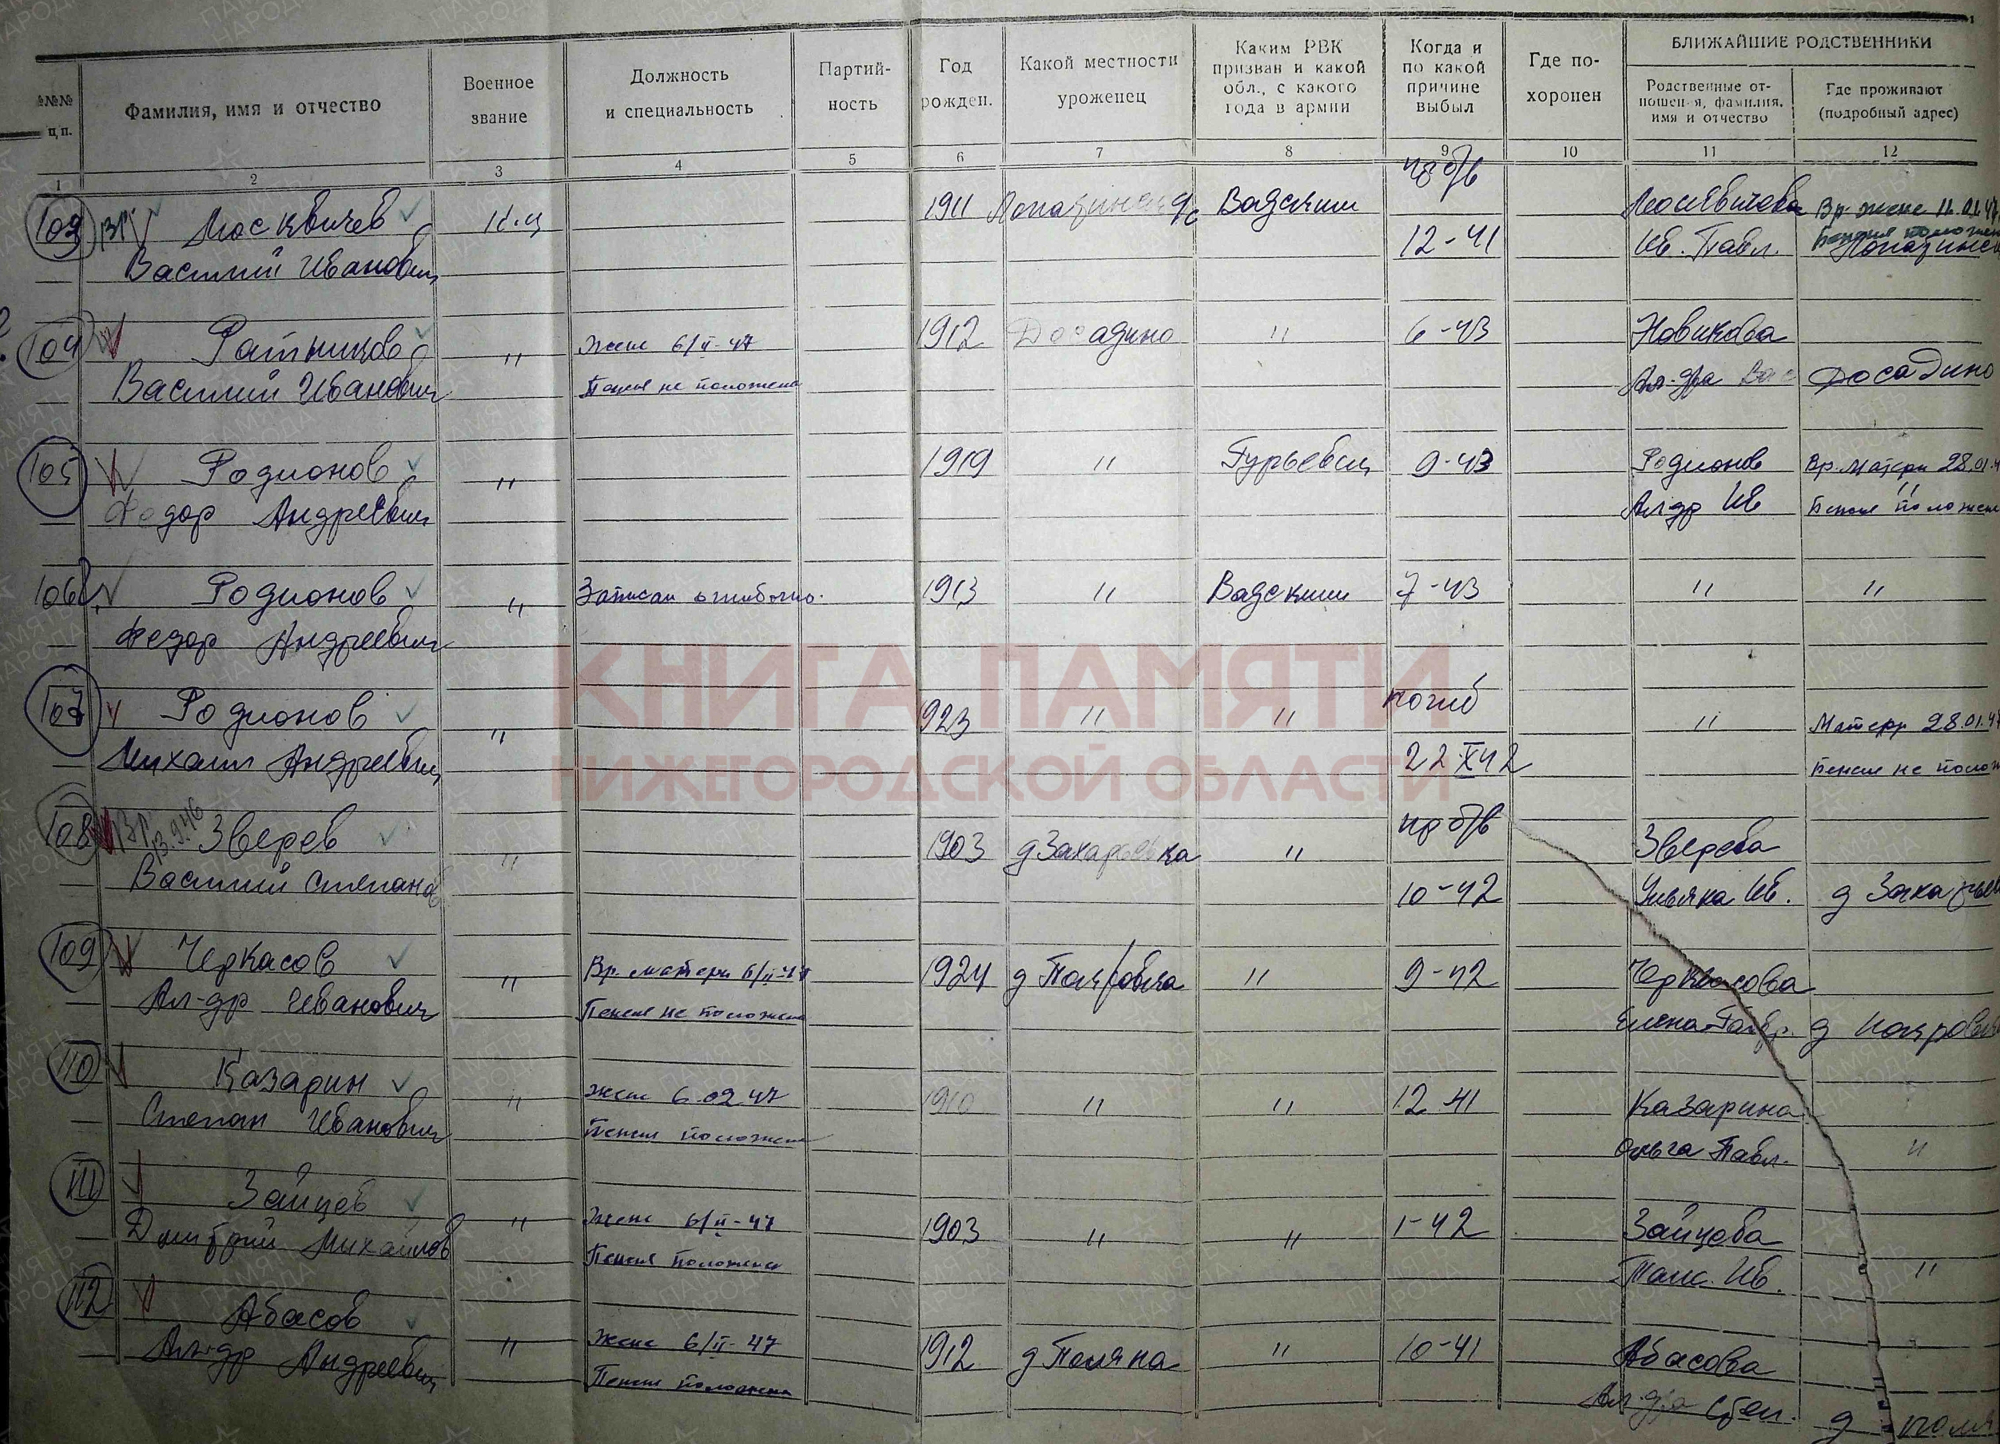 №№№ п.п.
Фамилия, имя и отчество
Военное звание
Должность и специальность
Партий-ность
Год рожден.
Какой местности уроженец
Каким РВК призван и какой обл., с какого года в армии
Когда и по какой причине выбыл
Где по-хоронен
БЛИЖАЙШИЕ РОДСТВЕННИКИ
Родственные от-ношения, фамилия, имя и отчество
Где проживают (подробный адрес)
1 2 3 4 5 6 7 8 9 10 11 12
пр б/в
103 Вр Москвичев К-ц 1911 Вадским Москвичова Вр. жене 11.01.47
Василий Иванович 12-41 Ив. Павл.
104 Ратников " Жене 6/II-47 1912 Досадино " 6-43 Новикова
Василий Иванович Пенсия не положена Ал-дра Вас Досадино
105 Родионов " 1919 " Гурьевским 9-43 Родионов Вр. матери 28.01.4
Федор Андреевич Ал-др Ив " Пенсия положена
106 Родионов " Записан ошибочно. 1913 " Вадским 7-43 " "
Федор Андреевич
погиб
107 Родионов " 923 " " " Матери 28.01.47
Михаил Андреевич 22 X 42 Пенсия не полож
пр б/в
108 Вр. 13.9.46 Зверев " 1903 д Захарьевка " Зверева
Василий Степанов 10-42 Ульяна Ив. д
109 Черкасов " Вр. матери 6/II-47 1924 д " 9-42 Черкасова
Ал-др Иванович Пенсия не положена Елена д
110 Казарин " жене 6.02.47 1910 " " 12-41 Казарина
Степан Иванович Пенсия положена Ольга Павл. "
111 Зайцев " Жене 6/II-47 1903 " " 1-42 Зайцева
Дмитрий Михайлов Пенсия положена Ив. "
112 Абасов " Жене 6/II-47 1912 д Поляна " 10-41 Абасова
Ал-др Андреевич Пенсия положена Ал-дра Степ. д поля
КНИГА ПАМЯТИ
НИЖЕГОРОДСКОЙ ОБЛАСТИ
ПАМЯТЬ НАРОДА